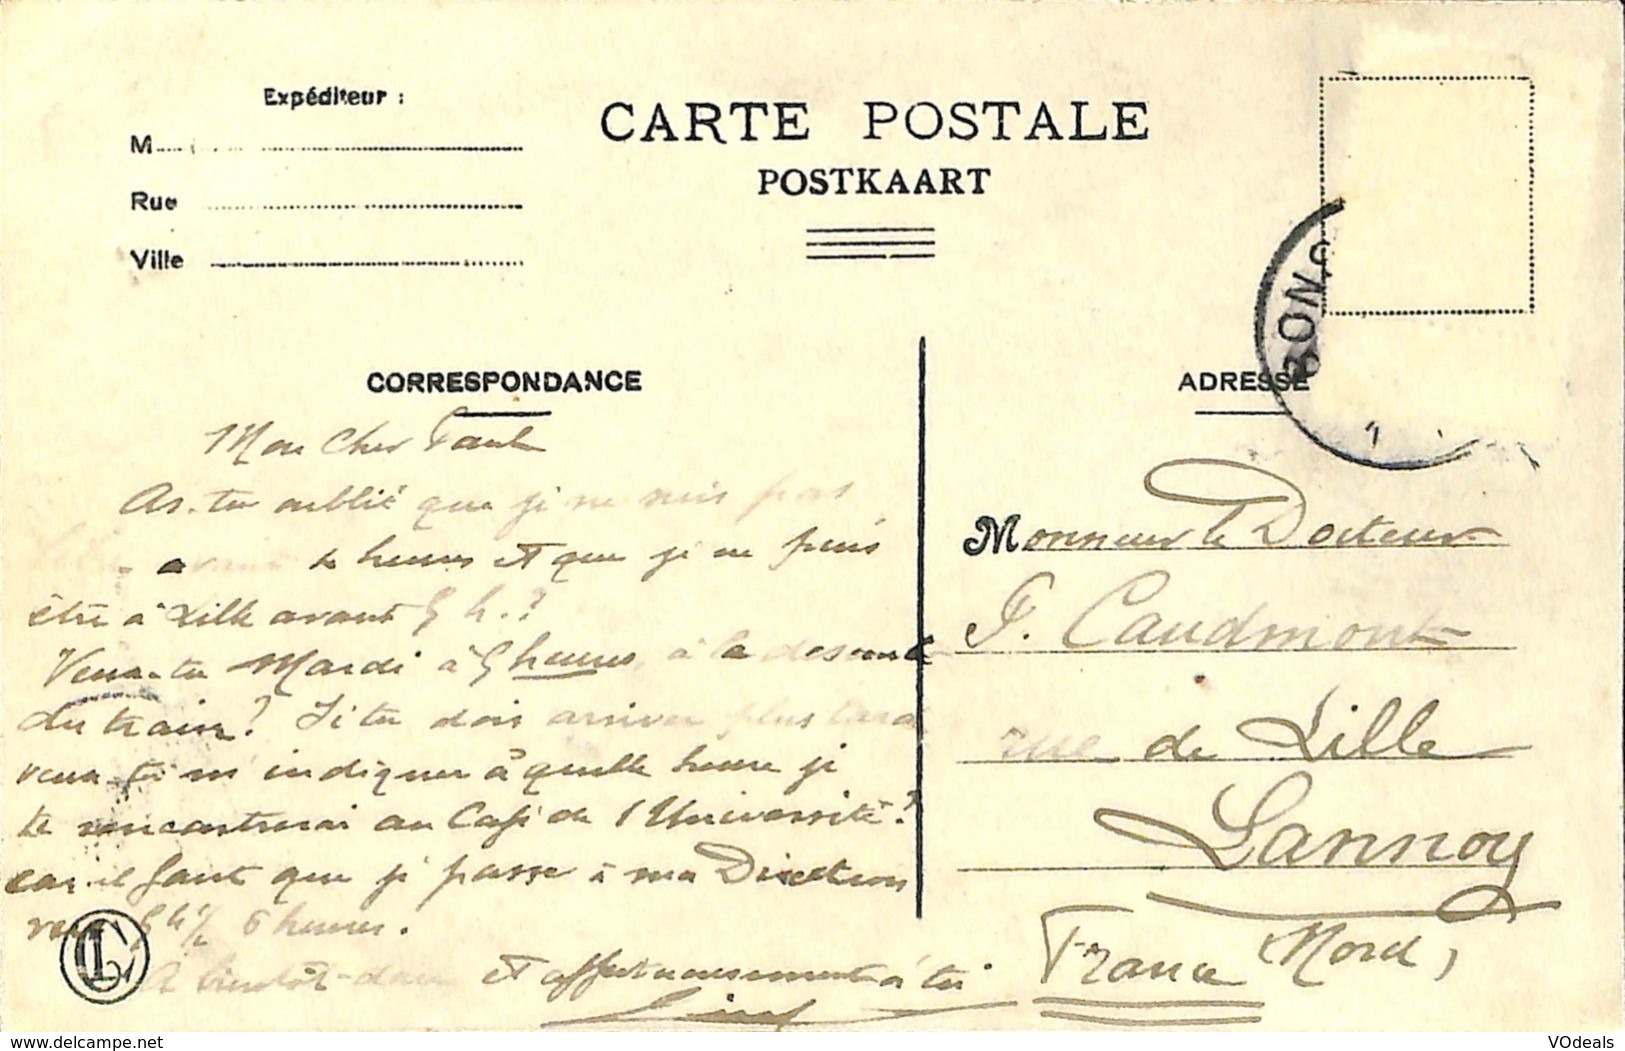 Expéditeur :
M
Rue
Ville
CARTE POSTALE
POSTKAART
CORRESPONDANCE
Mon cher Paul
As-tu oublié que je ne suis pas
heures et que je ne puis
être à Lille avant 5 h. ?
Veux-tu Mardi à 5 heures, à la descente
du train ? Si tu dois arriver plus tard
veux-tu m'indiquer à quelle heure je
te rencontrerai au Café de l'Université ?
car il faut que je passe à ma Direction
vers 5 h 1/2 6 heures.
A bientôt donc et affectueusement à toi
ADRESSE
BONS
Monsieur le Docteur
P. Caudmont
rue de Lille
Lannoy
(Nord)
France
LC
www.delcampe.net
VOdeals